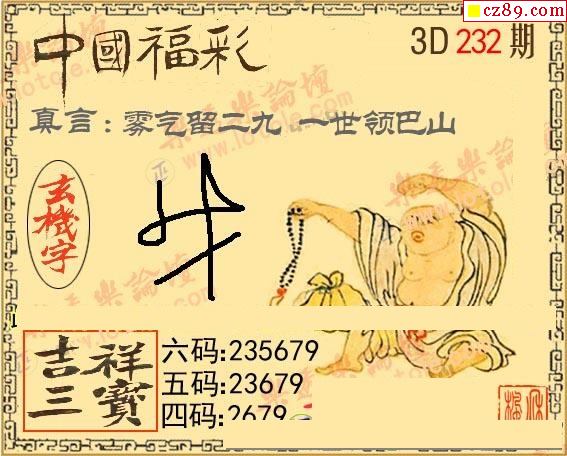 cz89.com
中國福彩
3D 232 期
真言：雾气留二九 一世领巴山
玄機字
吉祥三寳
六码:235679
五码:23679
四码:2679